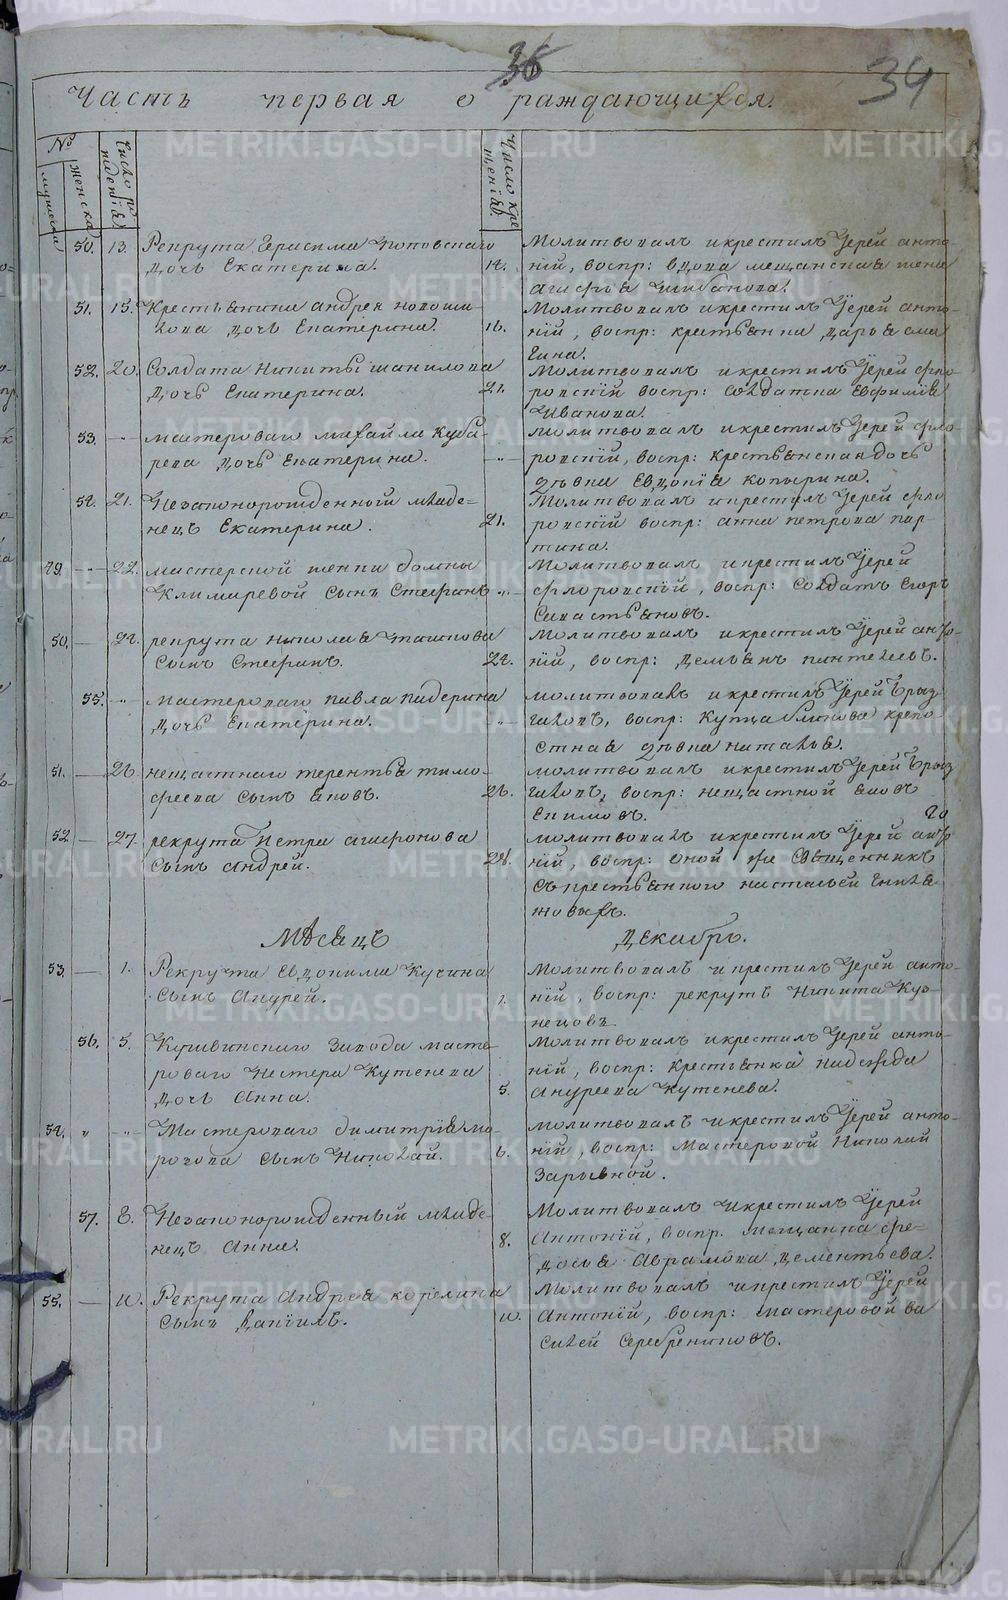 36
34
Часть первая о раждающихся.
№
мужеска
женска
Число рождения
Число крещенія
50. 13. Рекрута Герасима Поповскаго
дочь Екатерина.
14.
Молитвовалъ и крестилъ Іерей Анто-
ній, воспр: вдова мещанская жена
51. 15. Крестьянина Андрея Новоши-
лова дочь Екатерина.
16.
Молитвовалъ и крестилъ Іерей Анто-
ній, воспр: крестьянка Дарья
52. 20. Солдата Никиты Шанилова
дочь Екатерина.
21.
Молитвовалъ и крестилъ Іерей Фло-
ровскій воспр: Солдатка Евфимія
Иванова.
53. мастероваго Михайла Куба-
рева дочь Екатерина.
Молитвовалъ и крестилъ Іерей Фло-
ровскій, воспр: крестьянская дочь
дѣвка Евдокія Копырина.
54. 21. Незаконорожденной младе-
нецъ Екатерина.
21.
Молитвовалъ и крестилъ Іерей Фло-
ровскій воспр: Анна Петрова Пар-
тина.
49. 22. мастерской женки Домны
Климаревой сынъ Стефанъ
Молитвовалъ и крестилъ Іерей
Флоровскій, воспр: Солдатъ Егоръ
Севастьяновъ.
50. 24. рекрута Николая
сынъ Стефанъ.
24.
Молитвовалъ и крестилъ Іерей Анто-
ній, воспр: Демьянъ Пантелеевъ.
55. мастероваго Павла Падерина
дочь Екатерина.
молитвовалъ и крестилъ Іерей Брыз-
галовъ, воспр: Купца Блинова крепо-
стная дѣвка Наталья.
51. 26. нещастнаго Терентья Тимо-
феева сынъ Яковъ.
26.
молитвовалъ и крестилъ Іерей Брыз
галовъ, воспр: нещастной Яковъ
Екимовъ.
52. 27. рекрута Петра Агафонова
сынъ Андрей.
28.
молитвовалъ и крестилъ Іерей Анто
ній, воспр: оной же Священникъ
съ крестьянкою Настасьей
Мѣсяцъ Декабрь.
53. 1. Рекрута Евдокима Кучина
сынъ Андрей.
1.
Молитвовалъ и крестилъ Іерей Анто-
ній, воспр: рекрутъ Никита Куз-
нецовъ
56. 5. Кушвинскаго Завода масте-
роваго Нестера Кутенева
дочь Анна.
5.
Молитвовалъ и крестилъ Іерей Анто-
ній, воспр: Крестьянка Надежда
Андреева Кутенева.
54. Мастероваго Димитрія Мо-
розова сынъ Николай.
6.
молитвовалъ и крестилъ Іерей Анто-
ній, воспр: Мастеровой Николай
57. 8. Незаконорожденный младе-
нецъ Анна.
8.
Молитвовалъ и крестилъ Іерей
Антоній, воспр: Мещанка Фе-
досья Аврамова Дементьева.
55. 10. Рекрута Андрея Корелина
сынъ Даніилъ.
10.
Молитвовалъ и крестилъ Іерей
Антоній, воспр: Мастеровой Ва
силей Серебрениковъ.
METRIKI.GASO-URAL.RU